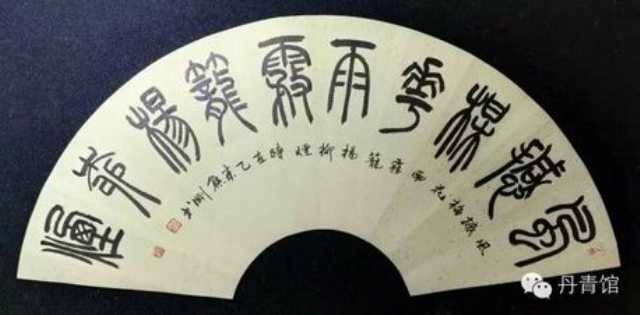 風撼梅花雨霧籠楊柳煙
風撼梅花雨霧籠楊柳煙時在乙未
丹青馆